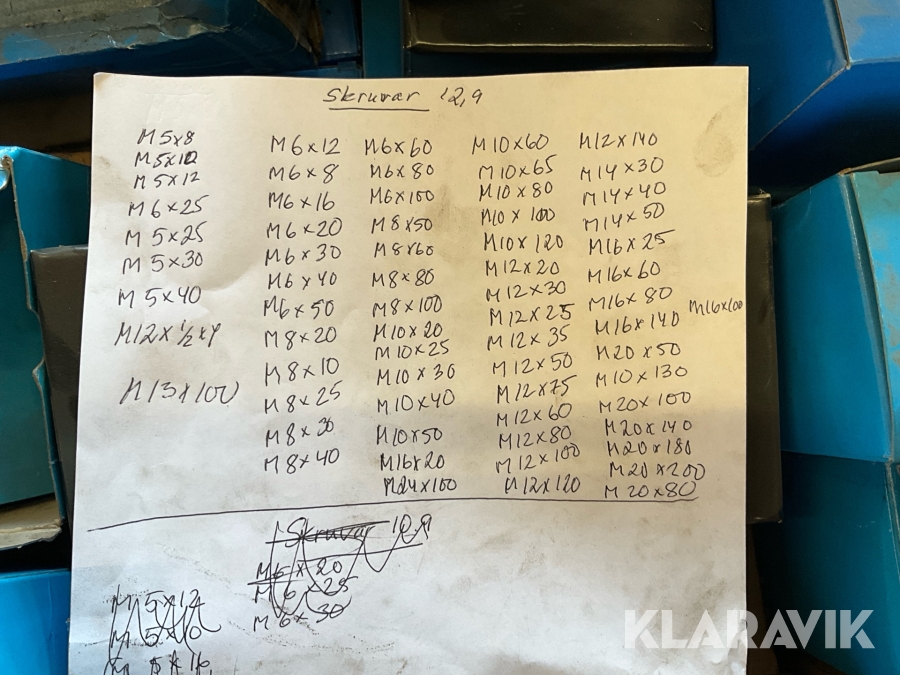 Skruvar 12,9
M5x8
M5x10
M5x12
M6x25
M5x25
M5x30
M5x40
M12x½x4
M13x100
M6x12
M6x8
M6x16
M6x20
M6x30
M6x40
M6x50
M8x20
M8x10
M8x25
M8x30
M8x40
M6x60
M6x80
M6x100
M8x50
M8x60
M8x80
M8x100
M10x20
M10x25
M10x30
M10x40
M10x50
M16x20
M24x100
M10x60
M10x65
M10x80
M10x100
M10x120
M12x20
M12x30
M12x25
M12x35
M12x50
M12x75
M12x60
M12x80
M12x100
M12x120
M12x140
M14x30
M14x40
M14x50
M16x25
M16x60
M16x80 M16x100
M16x140
M20x50
M10x130
M20x100
M20x140
M20x180
M20x200
M20x80
Skruvar 10,9
M6x20
M6x25
M6x30
M5x12
M5x10
KLARAVIK